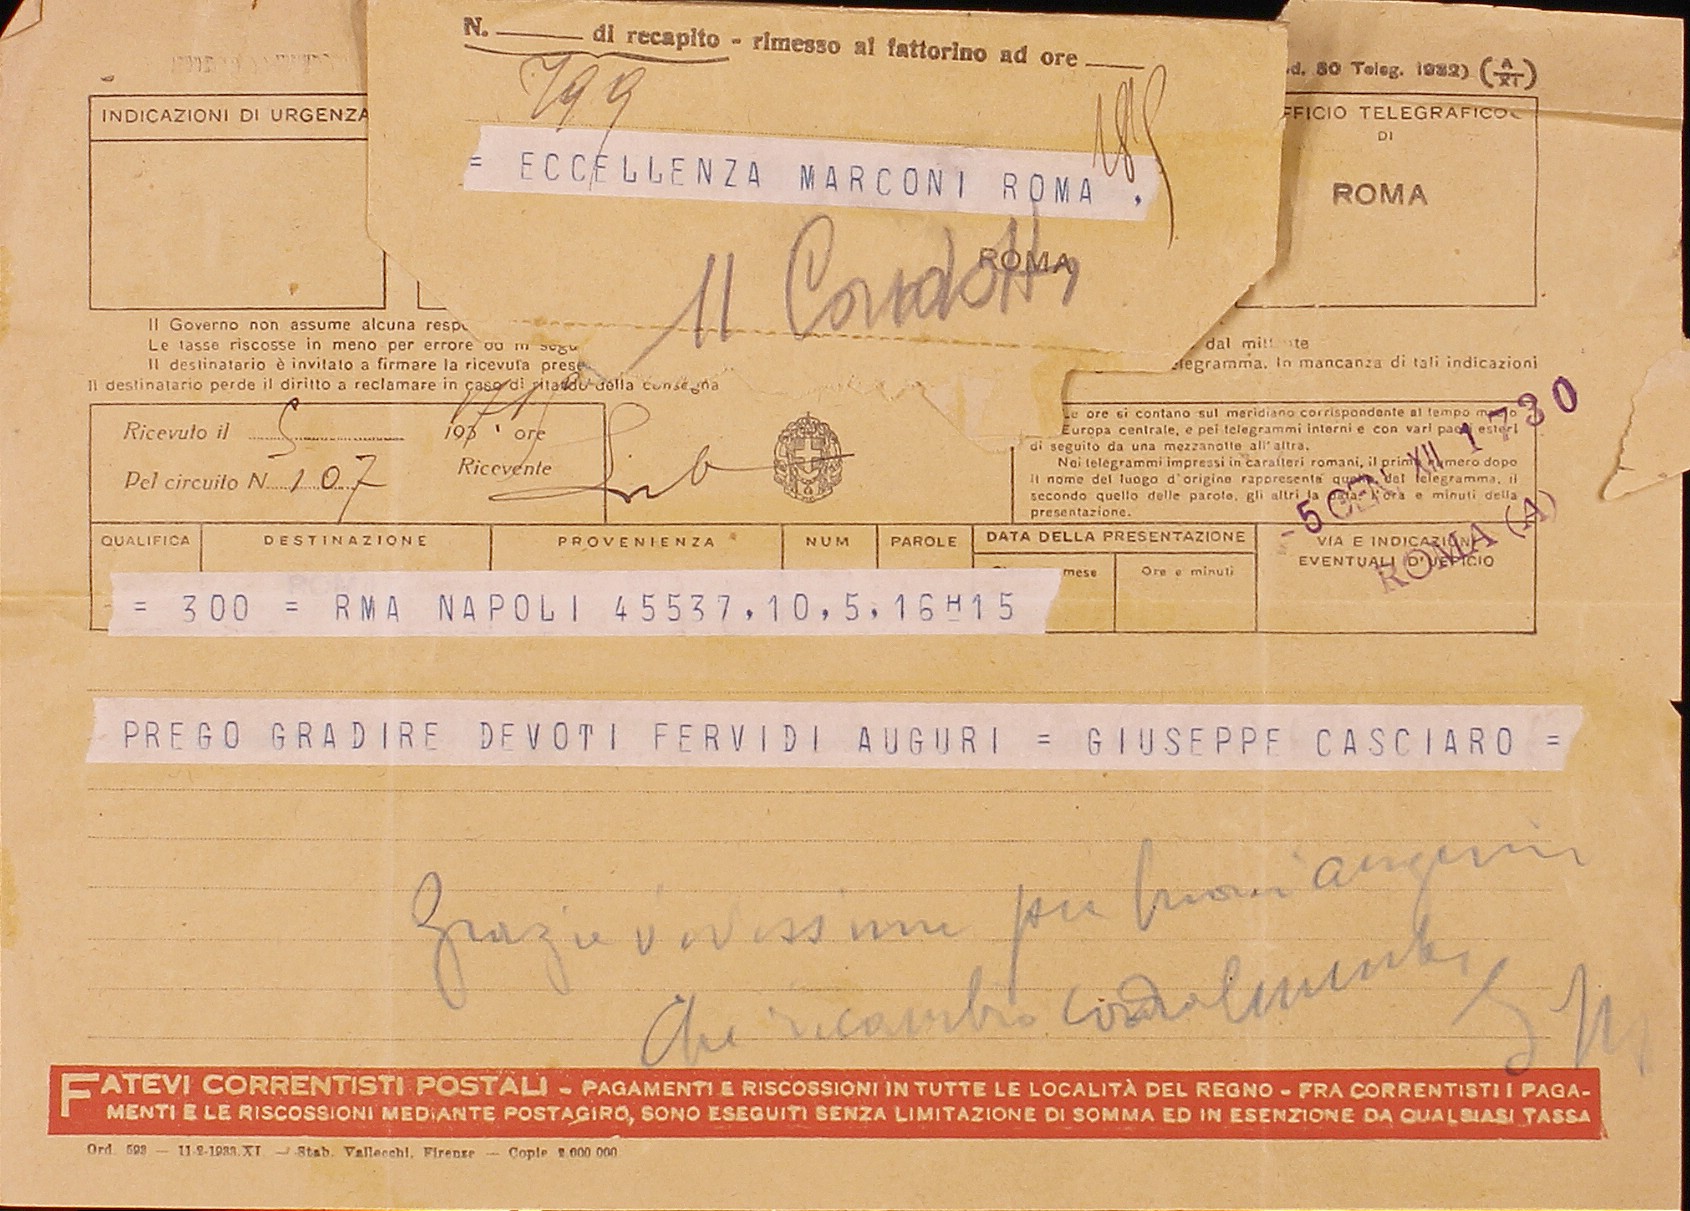 N. di recapito - rimesso al fattorino ad ore
799
(A/XI)
80 Teleg. 1932)
INDICAZIONI DI URGENZA
= ECCELLENZA MARCONI ROMA .
UFFICIO TELEGRAFICO
DI
ROMA
ROMA
11
Il Governo non assume alcuna
Le tasse riscosse in meno per errore
dal mittente
Il destinatario è invitato a firmare la ricevuta
telegramma. In mancanza di tali indicazioni
Il destinatario perde il diritto a reclamare in caso di ritardo della consegna
Ricevuto il 5 193 ore
Pel circuito N. 107 Ricevente
Le ore si contano sul meridiano corrispondente al tempo medio
Europa centrale, e pei telegrammi interni e con vari paesi esteri
di seguito da una mezzanotte all'altra.
Nei telegrammi impressi in caratteri romani, il primo numero dopo
il nome del luogo d'origine rappresenta quello del telegramma, il
secondo quello delle parole, gli altri la data, l'ora e minuti della
presentazione.
-5 GEN XII 1730
ROMA (A)
QUALIFICA DESTINAZIONE PROVENIENZA NUM PAROLE DATA DELLA PRESENTAZIONE VIA E INDICAZIONI
EVENTUALI D'UFFICIO
mese Ore e minuti
= 300 = RMA NAPOLI 45537.10.5.16H15
PREGO GRADIRE DEVOTI FERVIDI AUGURI = GIUSEPPE CASCIARO =
Grazie vivissime per buoni auguri
che ricambio cordialmente
G M
FATEVI CORRENTISTI POSTALI - PAGAMENTI E RISCOSSIONI IN TUTTE LE LOCALITÀ DEL REGNO - FRA CORRENTISTI I PAGA-
MENTI E LE RISCOSSIONI MEDIANTE POSTAGIRO, SONO ESEGUITI SENZA LIMITAZIONE DI SOMMA ED IN ESENZIONE DA QUALSIASI TASSA
Ord. 593 — 11-2-1933.XI — Stab. Vallecchi, Firenze — Copie 2.000.000